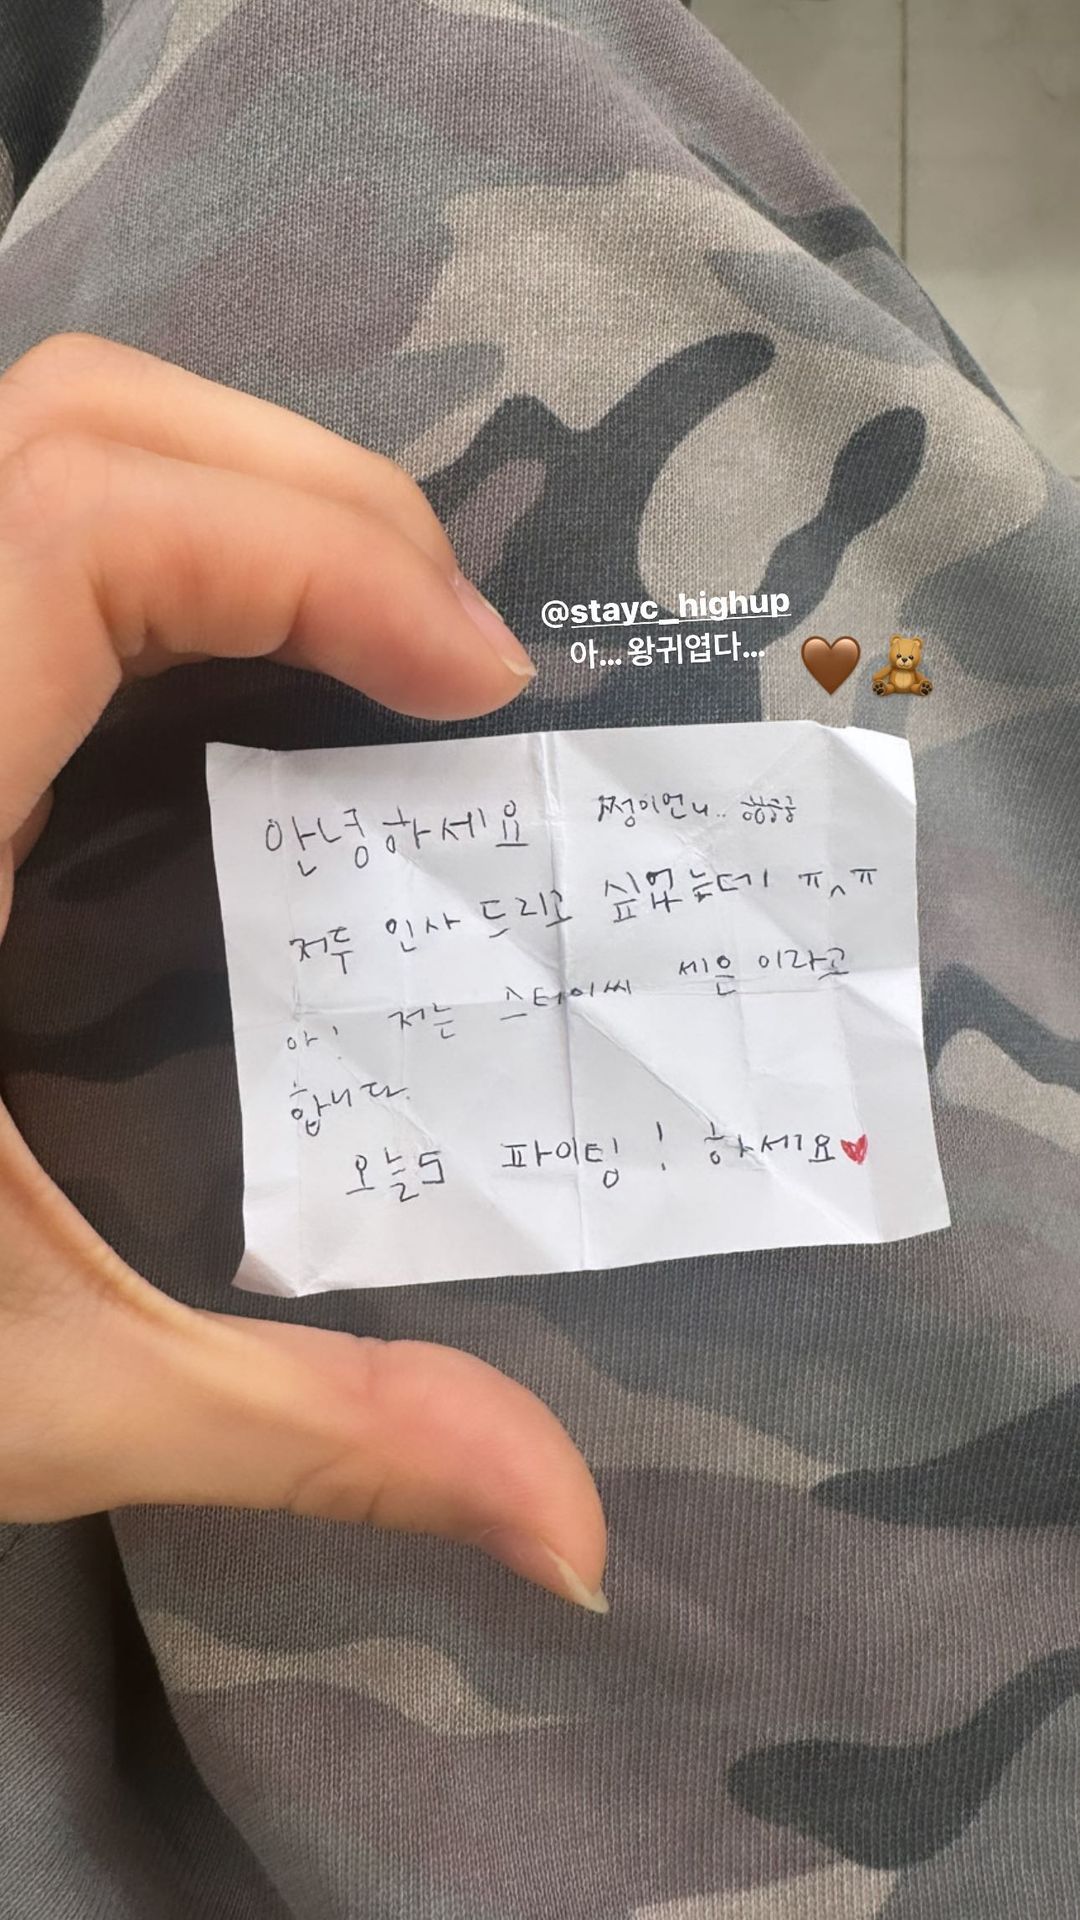 @stayc_highup
아... 왕귀엽다... 🤎 🧸
안녕하세요 쩡이언니.. 헝흥흥
저두 인사 드리고 싶었는데 ㅠ^ㅠ
아! 저는 스테이씨 세은 이라고
합니다.
오늘도 파이팅! 하세요♥